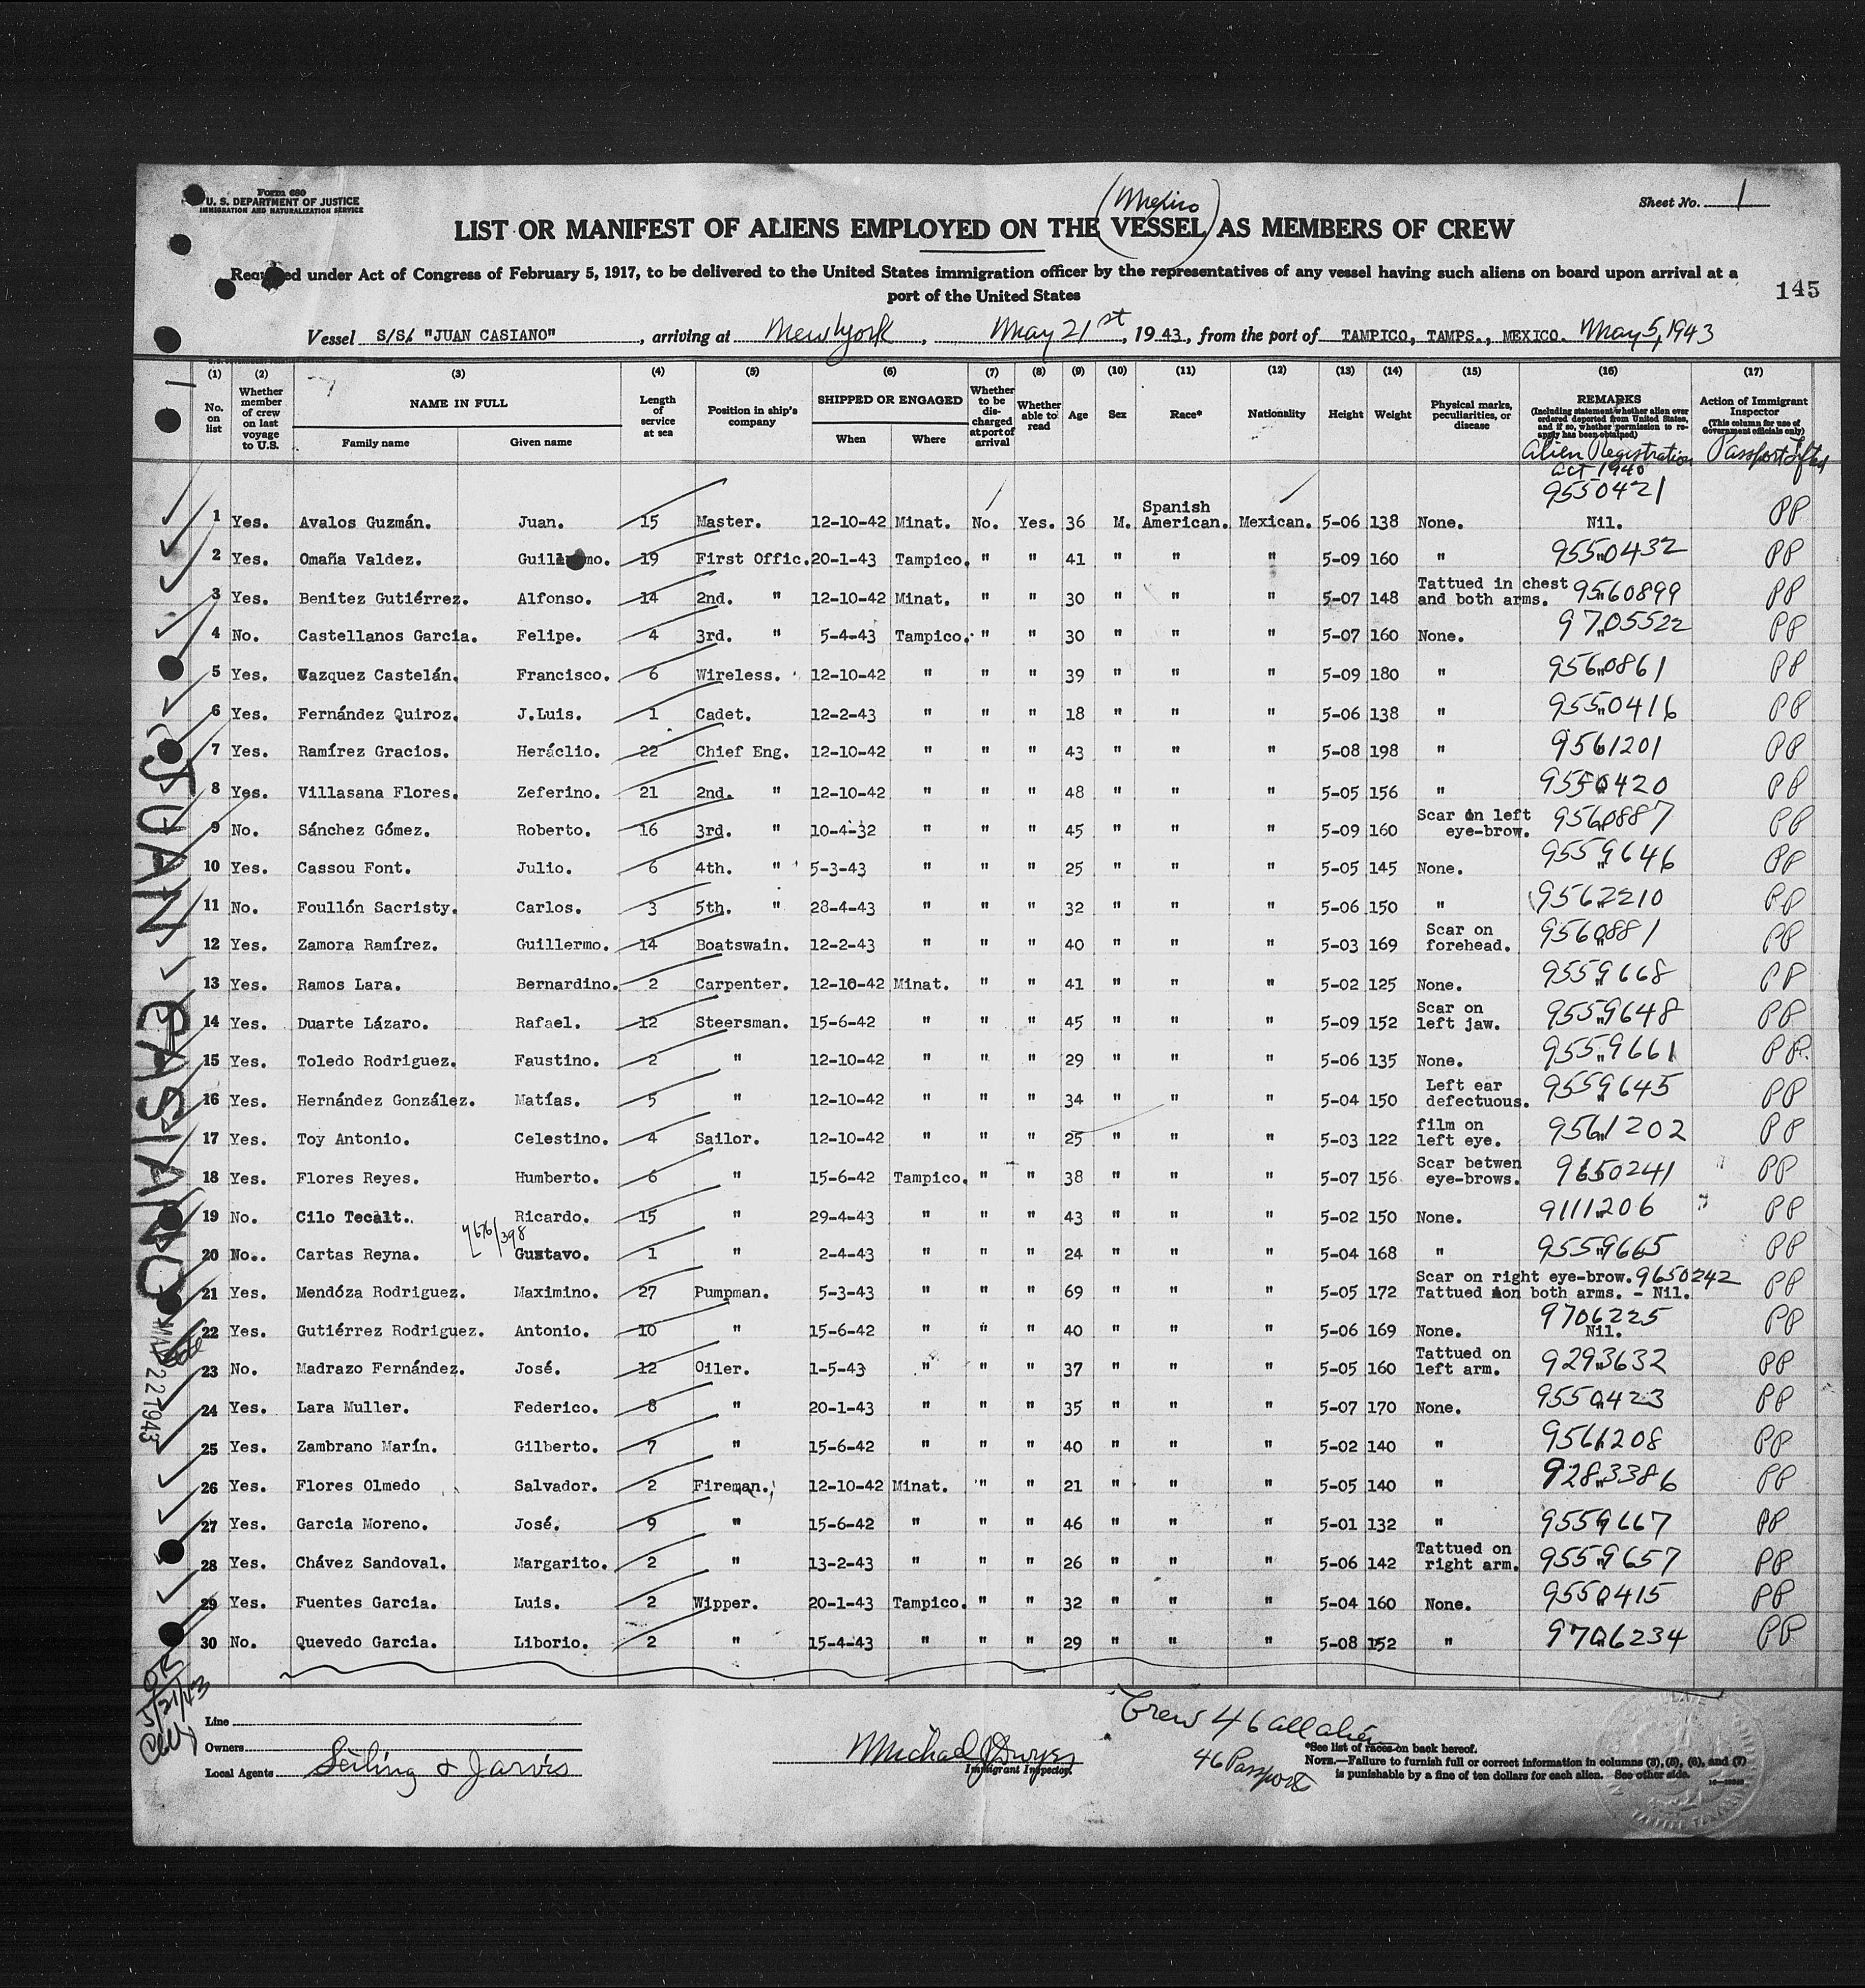 Form 680
U. S. DEPARTMENT OF JUSTICE
IMMIGRATION AND NATURALIZATION SERVICE
Sheet No. 1
(Mexico)
LIST OR MANIFEST OF ALIENS EMPLOYED ON THE VESSEL AS MEMBERS OF CREW
Required under Act of Congress of February 5, 1917, to be delivered to the United States immigration officer by the representatives of any vessel having such aliens on board upon arrival at a
port of the United States
145
Vessel S/S. "JUAN CASIANO", arriving at New York, May 21st, 1943, from the port of TAMPICO, TAMPS., MEXICO. May 5, 1943
(1) (2) (3) (4) (5) (6) (7) (8) (9) (10) (11) (12) (13) (14) (15) (16) (17)
No. on list
Whether member of crew on last voyage to U.S.
NAME IN FULL
Family name Given name
Length of service at sea
Position in ship's company
SHIPPED OR ENGAGED
When Where
Whether to be discharged at port of arrival
Whether able to read
Age
Sex
Race*
Nationality
Height
Weight
Physical marks, peculiarities, or disease
REMARKS
(Including statement whether alien ever ordered deported from United States, and if so, whether permission to reapply has been obtained)
Alien Registration
Act 1940
Action of Immigrant Inspector
(This column for use of Government officials only)
Passport Lifted
1 Yes. Avalos Guzmán. Juan. 15 Master. 12-10-42 Minat. No. Yes. 36 M. Spanish American. Mexican. 5-06 138 None. 9550421 Nil. PP
2 Yes. Omaña Valdez. Guillermo. 19 First Offic. 20-1-43 Tampico. " " 41 " " " 5-09 160 " 9550432 " PP
3 Yes. Benitez Gutiérrez. Alfonso. 14 2nd. " 12-10-42 Minat. " " 30 " " " 5-07 148 Tattued in chest and both arms. 9560899 " PP
4 No. Castellanos Garcia. Felipe. 4 3rd. " 5-4-43 Tampico. " " 30 " " " 5-07 160 None. 9705522 " PP
5 Yes. Vazquez Castelán. Francisco. 6 Wireless. 12-10-42 " " " 39 " " " 5-09 180 " 9560861 " PP
6 Yes. Fernández Quiroz. J.Luis. 1 Cadet. 12-2-43 " " " 18 " " " 5-06 138 " 9550416 " PP
7 Yes. Ramírez Gracios. Heráclio. 22 Chief Eng. 12-10-42 " " " 43 " " " 5-08 198 " 9561201 " PP
8 Yes. Villasana Flores. Zeferino. 21 2nd. " 12-10-42 " " " 48 " " " 5-05 156 " 9550420 " PP
9 No. Sánchez Gómez. Roberto. 16 3rd. " 10-4-32 " " " 45 " " " 5-09 160 Scar on left eye-brow. 9560887 " PP
10 Yes. Cassou Font. Julio. 6 4th. " 5-3-43 " " " 25 " " " 5-05 145 None. 9559646 " PP
11 No. Foullón Sacristy. Carlos. 3 5th. " 28-4-43 " " " 32 " " " 5-06 150 " 9562210 " PP
12 Yes. Zamora Ramírez. Guillermo. 14 Boatswain. 12-2-43 " " " 40 " " " 5-03 169 Scar on forehead. 9560881 " PP
13 Yes. Ramos Lara. Bernardino. 2 Carpenter. 12-10-42 Minat. " " 41 " " " 5-02 125 None. 9559668 " PP
14 Yes. Duarte Lázaro. Rafael. 12 Steersman. 15-6-42 " " " 45 " " " 5-09 152 Scar on left jaw. 9559648 " PP
15 Yes. Toledo Rodriguez. Faustino. 2 " 12-10-42 " " " 29 " " " 5-06 135 None. 9559661 " PP
16 Yes. Hernández González. Matías. 5 " 12-10-42 " " " 34 " " " 5-04 150 Left ear defectuous. 9559645 " PP
17 Yes. Toy Antonio. Celestino. 4 Sailor. 12-10-42 " " " 25 " " " 5-03 122 film on left eye. 9561202 " PP
18 Yes. Flores Reyes. Humberto. 6 " 15-6-42 Tampico. " " 38 " " " 5-07 156 Scar betwen eye-brows. 9650241 PP
19 No. Cilo Tecalt. Ricardo. 15 " 29-4-43 " " " 43 " " " 5-02 150 None. 9111206 " PP
20 No. Cartas Reyna. Gustavo. 1 " 2-4-43 " " " 24 " " " 5-04 168 " 9559665 " PP
21 Yes. Mendóza Rodriguez. Maximino. 27 Pumpman. 5-3-43 " " " 69 " " " 5-05 172 Scar on right eye-brow. Tattued on both arms. - Nil. 9650242 PP
22 Yes. Gutiérrez Rodriguez. Antonio. 10 " 15-6-42 " " " 40 " " " 5-06 169 None. 9706225 Nil. PP
23 No. Madrazo Fernández. José. 12 Oiler. 1-5-43 " " " 37 " " " 5-05 160 Tattued on left arm. 9293632 " PP
24 Yes. Lara Muller. Federico. 8 " 20-1-43 " " " 35 " " " 5-07 170 None. 9550423 " PP
25 Yes. Zambrano Marín. Gilberto. 7 " 15-6-42 " " " 40 " " " 5-02 140 " 9561208 " PP
26 Yes. Flores Olmedo Salvador. 2 Fireman. 12-10-42 Minat. " " 21 " " " 5-05 140 " 9283386 " PP
27 Yes. Garcia Moreno. José. 9 " 15-6-42 " " " 46 " " " 5-01 132 " 9559667 " PP
28 Yes. Chávez Sandoval. Margarito. 2 " 13-2-43 " " " 26 " " " 5-06 142 Tattued on right arm. 9559657 " PP
29 Yes. Fuentes Garcia. Luis. 2 Wipper. 20-1-43 Tampico. " " 32 " " " 5-04 160 None. 9550415 " PP
30 No. Quevedo Garcia. Liborio. 2 " 15-4-43 " " " 29 " " " 5-08 152 " 9706234 " PP
JUAN CASIANO
MAY 22 1943
OK
5/21/43
Line
Owners
Local Agents Seiling & Jarvis
Michael
Immigrant Inspector.
Crew 46 all alien
46 Passport
*See list of races on back hereof.
NOTE.—Failure to furnish full or correct information in columns (3), (5), (6), and (7)
is punishable by a fine of ten dollars for each alien. See other side.